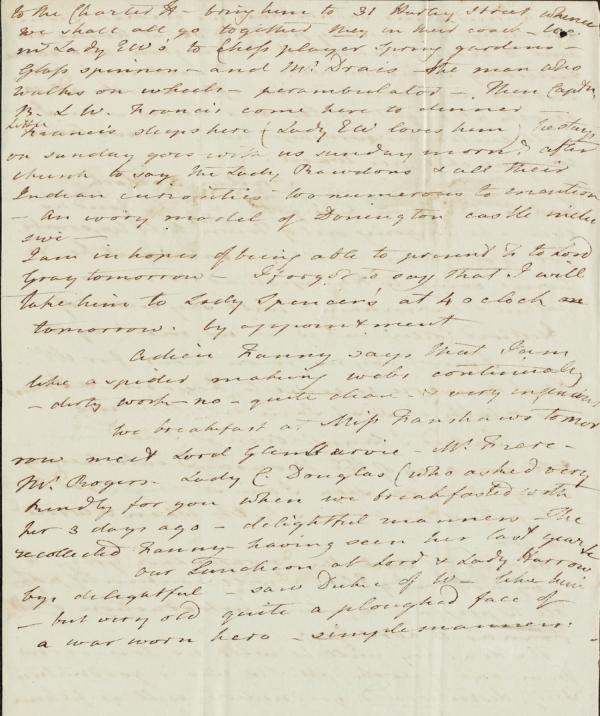 to the Charter H - bring him to 31 Harley Street whence
we shall all go together they in their coach - we
in Lady EW's to Chess player Spring gardens -
Glass spinner - and Mr. Drais - the man who
walks on wheels - perambulator - Then Captn.
B. & W. Francis come here to dinner -
Little
Francis sleeps here (Lady EW loves him) he stays
on sunday goes with us sunday morng. after
church to say the Lady Rawdons & all their
Indian curiosities too numerous to mention
- An ivory model of Donington castle inclu
sive -
I am in hopes of being able to present F to Lord
Gray tomorrow - I forgot to say that I will
take him to Lady Spencer's at 4 o clock
tomorrow. by appointment
Adieu Fanny says that I am
like a spider making webs continually
- dirty work - no - quite clean - & very ingenious
We breakfast at Miss Fanshaws tomor
row meet Lord Glenbervie - Mr. Frere -
Mr. Rogers - Lady C. Douglas (who asked very
kindly for you when we breakfasted with
her 3 days ago - delightful manners - She
recollected Fanny having seen her last year &c
our Luncheon at Lord & Lady Harrow
by's delightful - saw Duke of W - like him
- but very old quite a ploughed face of
a war worn hero - simple manners.